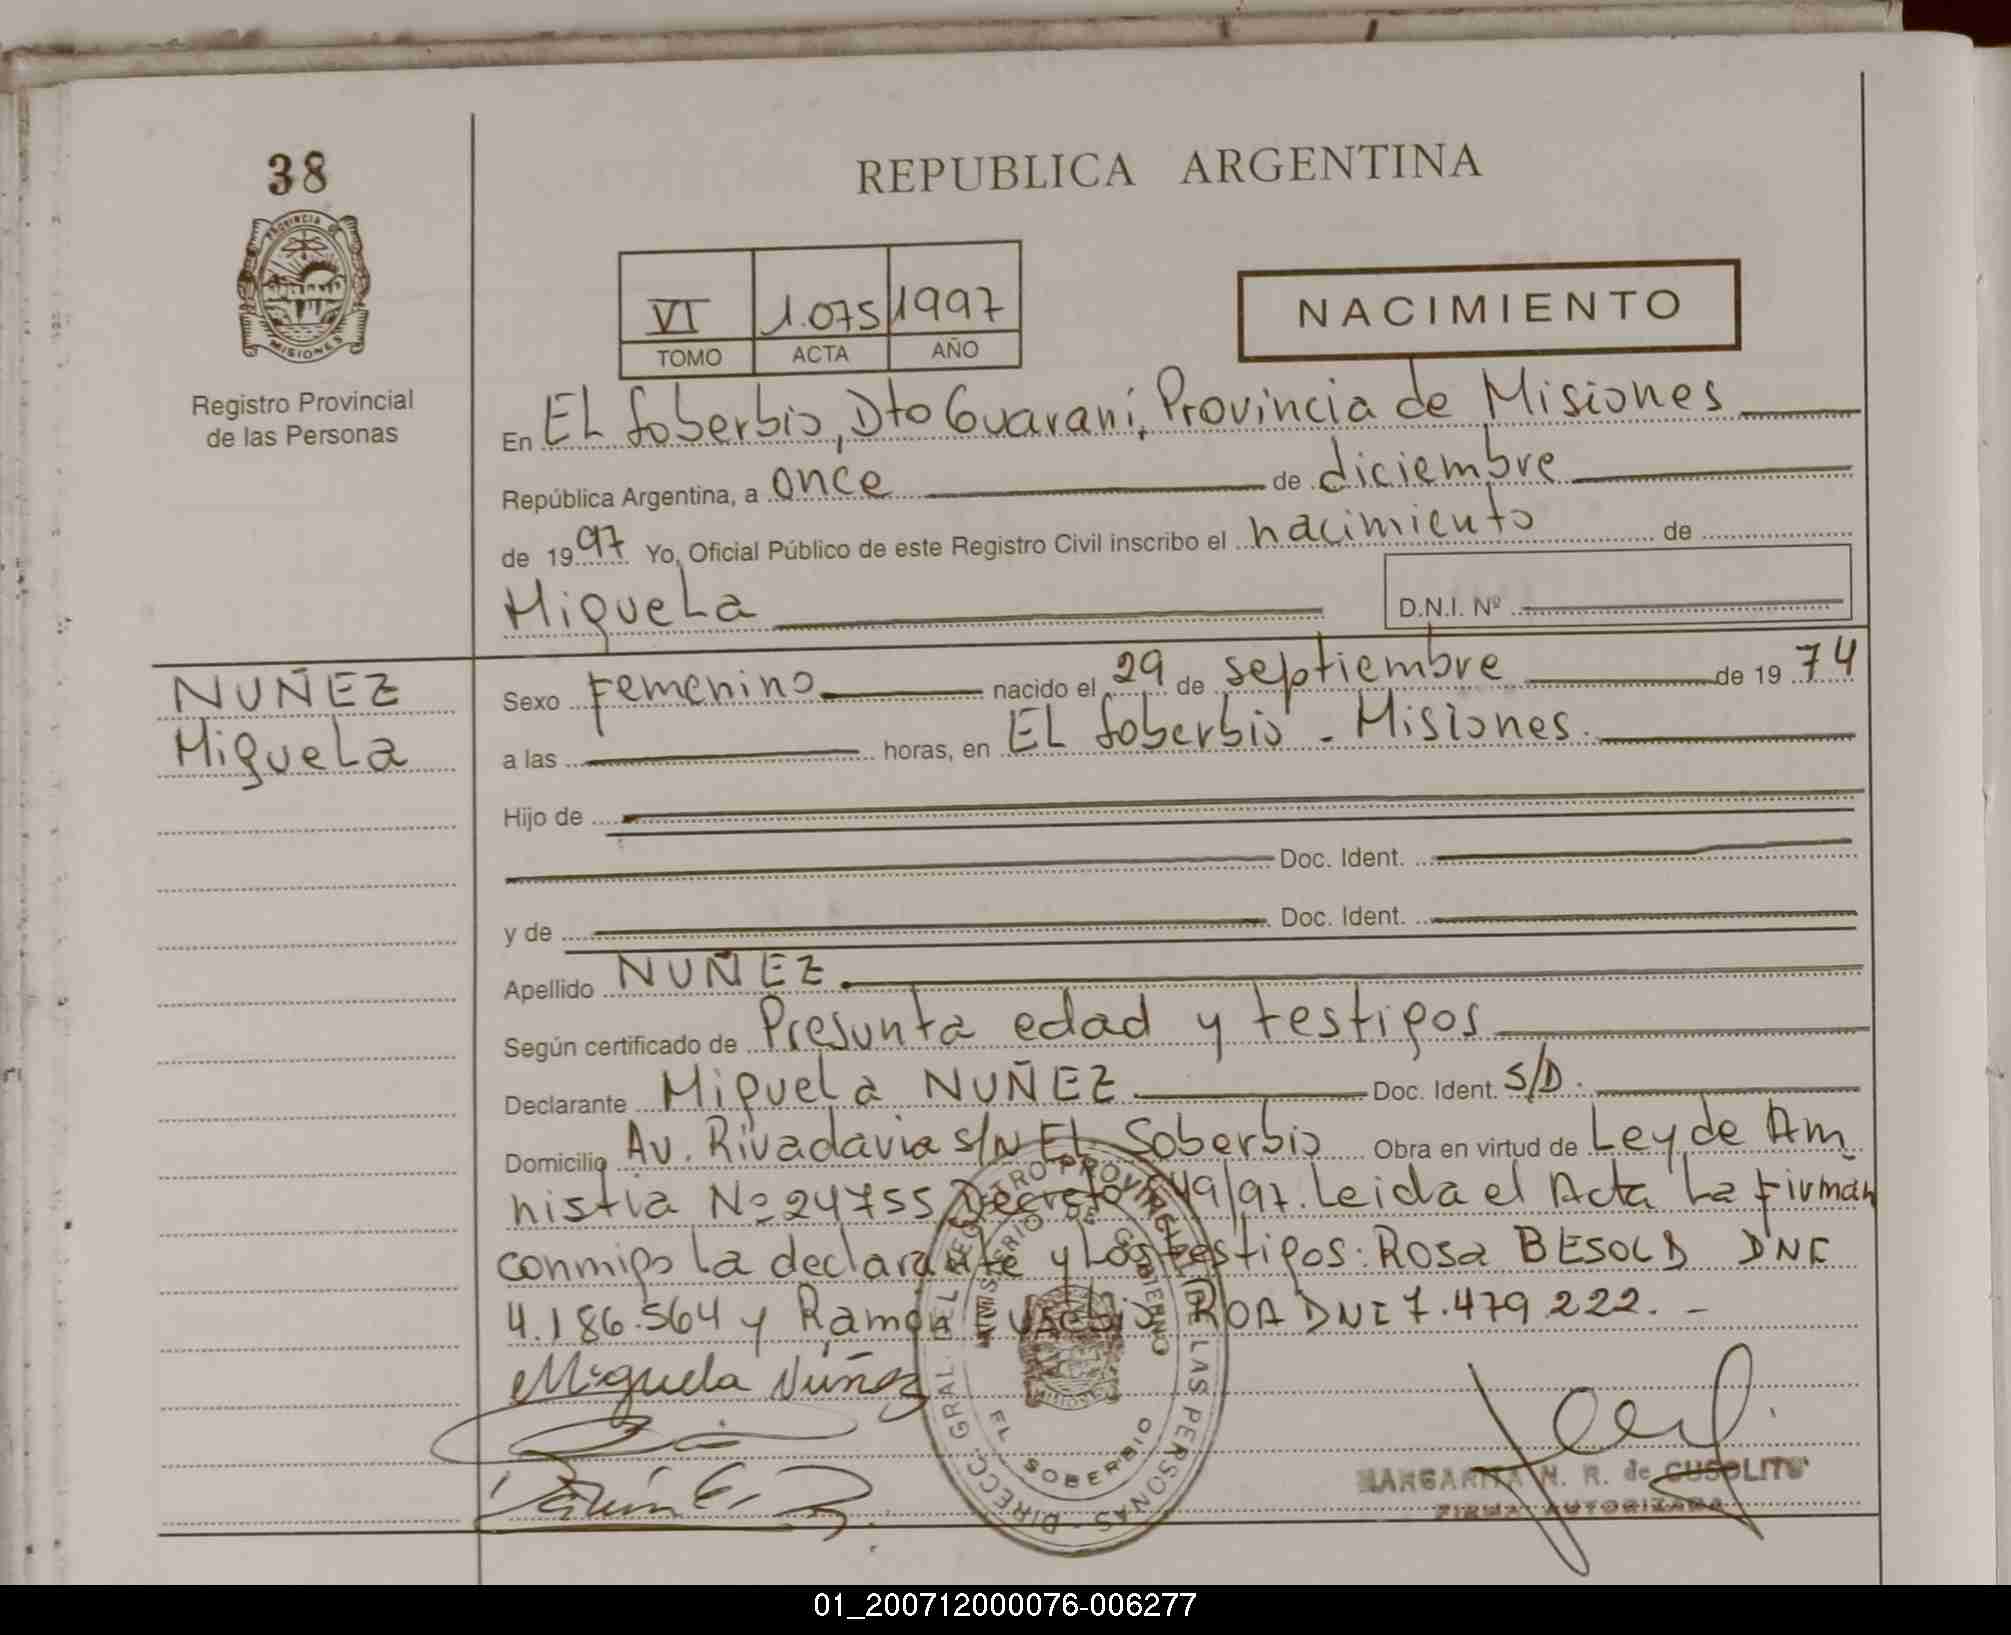 38
REPUBLICA ARGENTINA
PROVINCIA DE
MISIONES
Registro Provincial
de las Personas
VI 1.075 1997
TOMO ACTA AÑO
NACIMIENTO
En EL Soberbio, Dto Guaraní, Provincia de Misiones
República Argentina, a once de diciembre
de 1997 Yo, Oficial Público de este Registro Civil inscribo el nacimiento de
MigueLa
D.N.I. Nº
NUÑEZ
MigueLa
Sexo Femenino nacido el 29 de septiembre de 1974
a las horas, en EL Soberbio - Misiones.
Hijo de
Doc. Ident.
y de Doc. Ident.
Apellido NUÑEZ
Según certificado de Presunta edad y testigos
Declarante MigueLa NUÑEZ Doc. Ident. S/D.
Domicilio Av. Rivadavia s/N EL Soberbio Obra en virtud de Ley de Am
nistia Nº 24755 Decreto 949/97. Leida el Acta La firman
conmigo La declarante y Los testigos: Rosa BESOLD DNI
4.186.564 y Ramón Eusebio ROA DNI 7.479.222. -
Miguela Núñez
DIRECC. GRAL. DEL REGISTRO PROVINCIAL DE LAS PERSONAS
MINISTERIO DE GOBIERNO
MISIONES
EL SOBERBIO
MARGARITA N. R. de
FIRMA AUTORIZADA
01_200712000076-006277